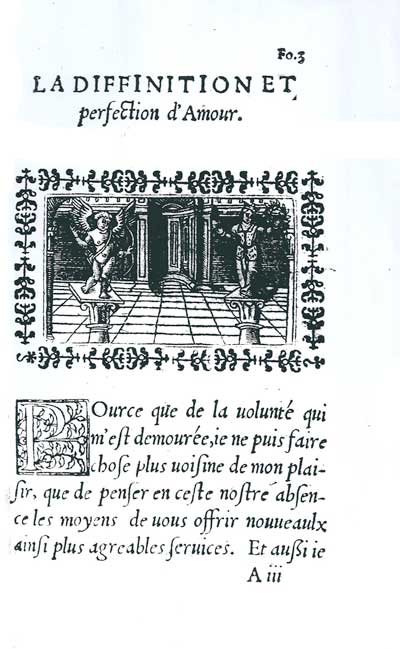 Fo.3
LA DIFFINITION ET
perfection d'Amour.
POurce que de la uolunté qui
m'est demourée, ie ne puis faire
chose plus uoisine de mon plai-
sir, que de penser en ceste nostre absen-
ce les moyens de uous offrir nouueaulx
ainsi plus agreables seruices. Et außi ie
A iii